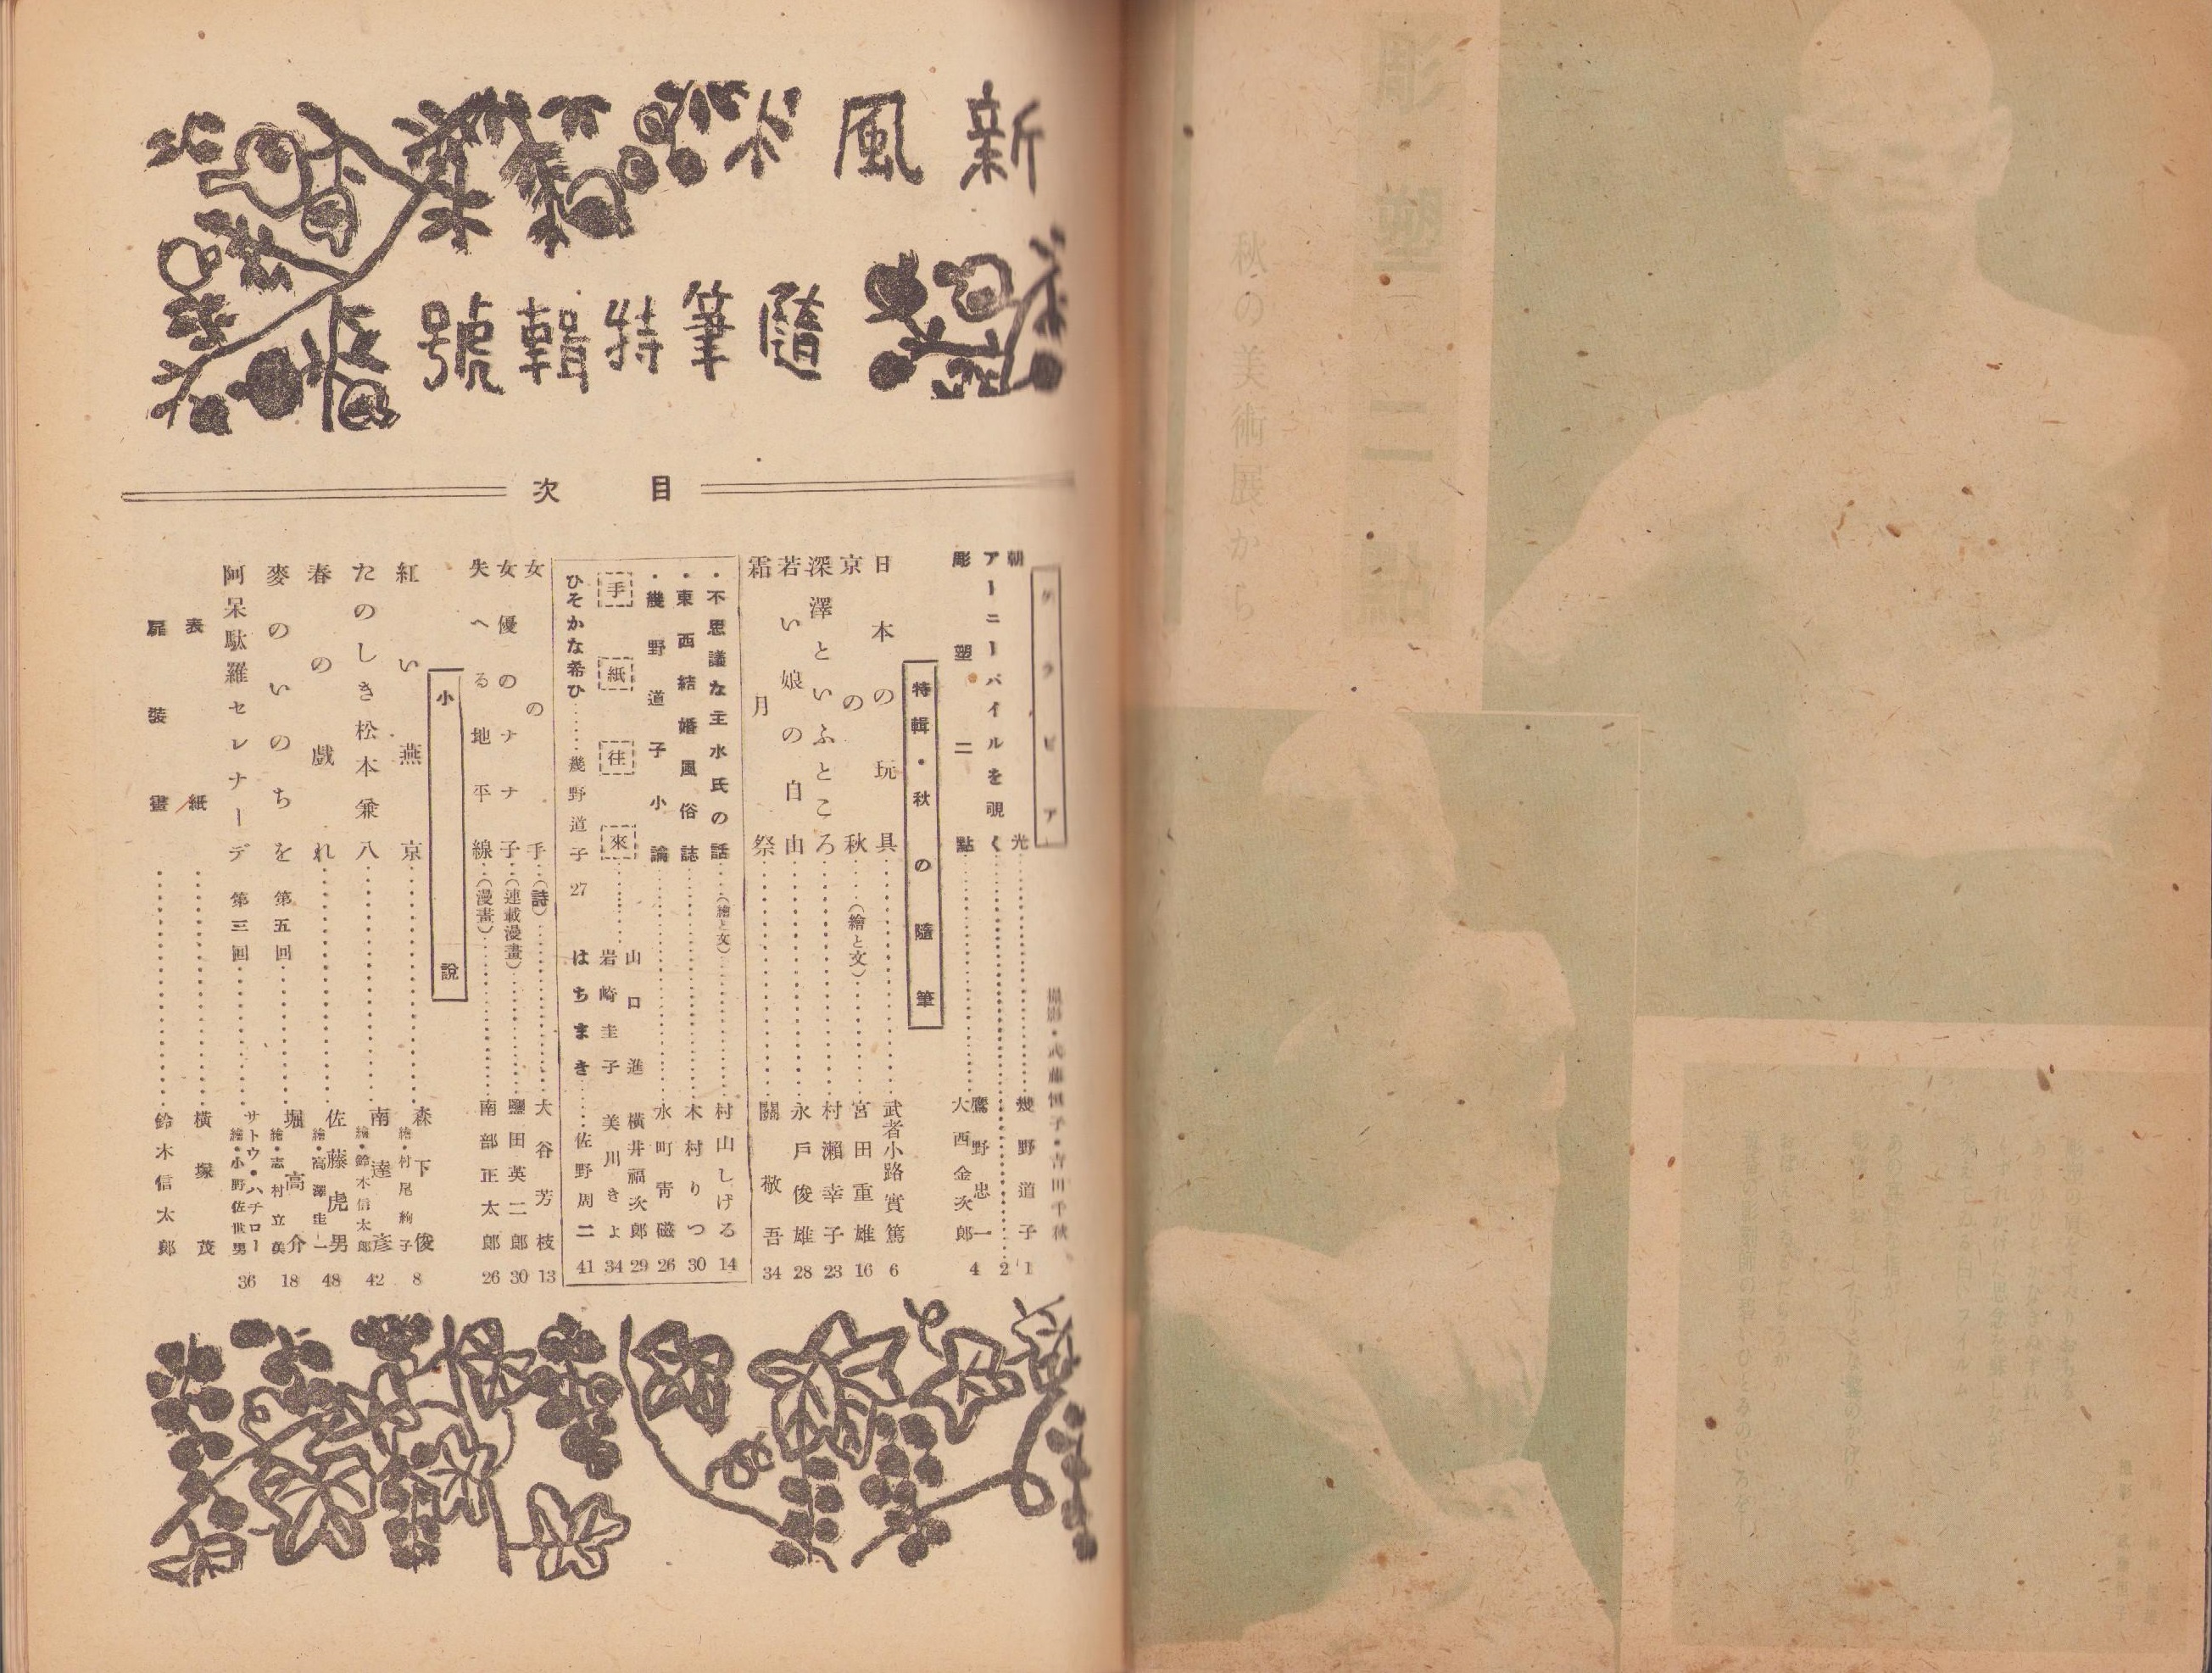 彫塑二點
秋の美術展から
新風
隨筆特輯號
目次
グラビア
撮影・武藤恒子・吉田千秋
朝光……幾野道子 1
アーニーパイルを覗く……鷹野忠一 2
彫塑二點……大西金次郎 4
特輯・秋の隨筆
日本の玩具……武者小路實篤 6
京の秋……(繪と文)……宮田重雄 16
深澤といふところ……村瀬幸子 23
若い娘の自山……永戶俊雄 28
霜月祭……關敬吾 34
・不思議な主水氏の話……(繪と文)……村山しげる 14
・東西結婚風俗誌……木村りつ 30
・幾野道子小論……水町靑磁 26
手紙往來……
山口進 橫井福次郎 29
岩崎圭子 美川きよ 34
ひそかな希ひ……幾野道子 27
はちまき……佐野周二 41
女の手……(詩)……大谷芳枝 13
女優のナナ子……(連載漫畫)……鹽田英二郎 30
失へる地平線……(漫畫)……南部正太郎 26
小說
紅い燕京……森下俊 8
繪・村尾絢子
たのしき松本兼八……南達彥 42
繪・鈴木信太郎
春の戲れ……佐藤虎男 48
繪・高澤圭一
麥のいのちを 第五回……堀高介 18
繪・志村立美
阿呆駄羅セレナーデ 第三回……サトウ・ハチロー 36
繪・小野佐世男
表紙……橫塚茂
扉裝畫……鈴木信太郎